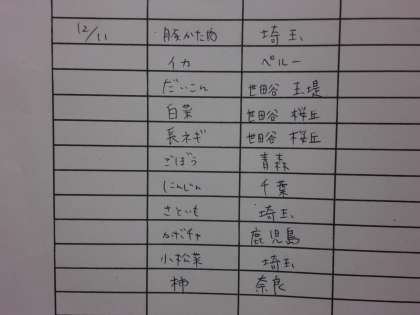 12/11 豚かた肉 埼玉
イカ ペルー
だいこん 世田谷 玉堤
白菜 世田谷 桜丘
長ネギ 世田谷 桜丘
ごぼう 青森
にんじん 千葉
さといも 埼玉
カボチャ 鹿児島
小松菜 埼玉
柿 奈良